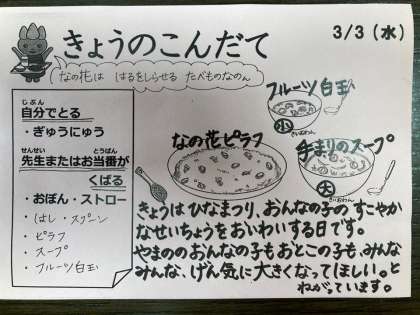 きょうのこんだて
3/3(水)
なの花は はるをしらせる たべものなのん
じぶん
自分でとる
・ぎゅうにゅう
せんせい とうばん
先生またはお当番が
くばる
・おぼん・ストロー
・はし・スプーン
・ピラフ
・スープ
・フルーツ白玉
フルーツ白玉
小
なの花ピラフ
手まりのスープ
大
きょうはひなまつり、おんなの子の、すこやか
なせいちょうをおいわいする日です。
やまののおんなの子もおとこの子も、みんな
みんな、げん気に大きくなってほしい。と
ねがっています。